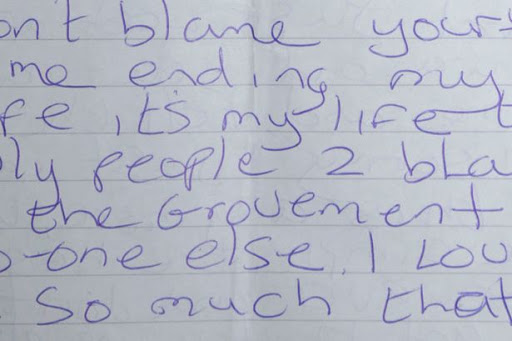 ont blame your
me ending my
fe, its my life t
ly people 2 bla
the Grovement
o-one else. I Lov
So much that